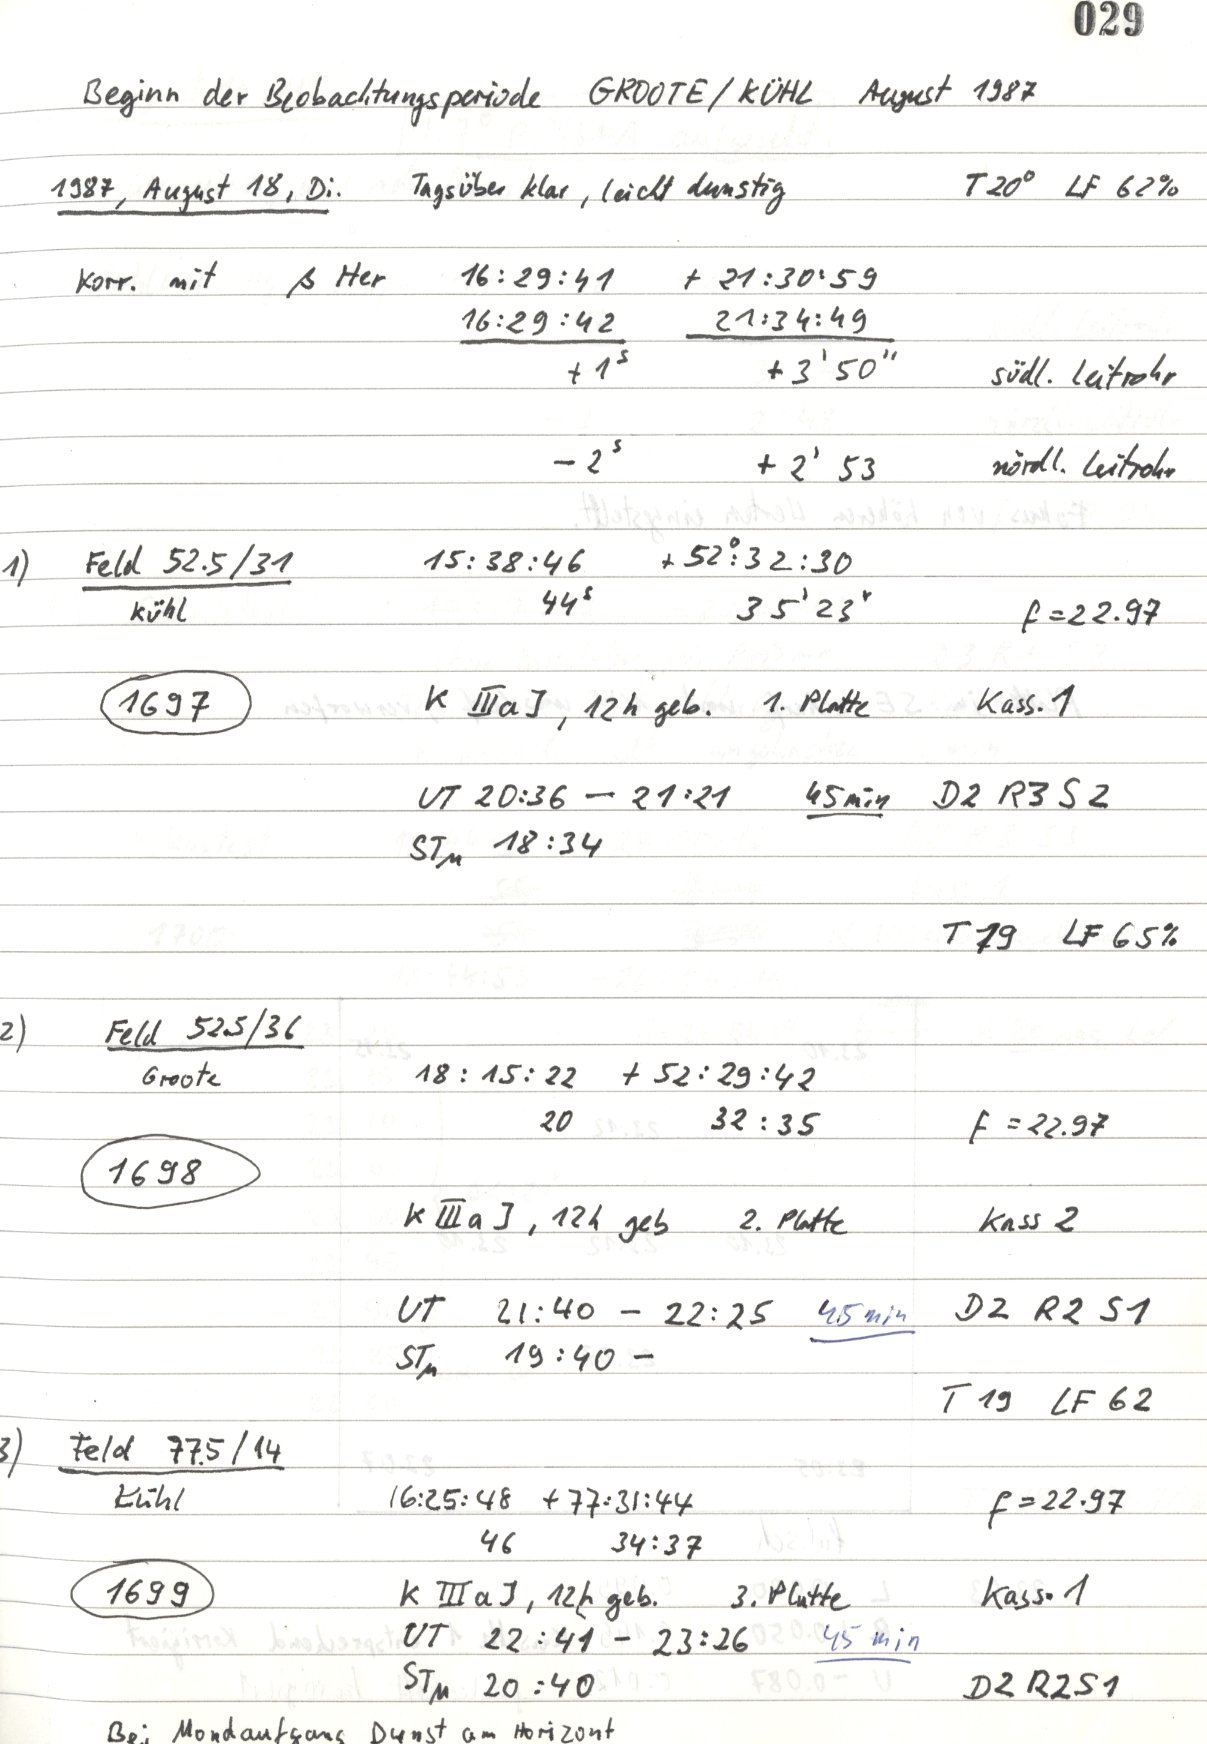 029
Beginn der Beobachtungsperiode GROOTE/KÜHL August 1987
1987, August 18, Di. Tagsüber klar, leicht dunstig T 20° LF 62%
Korr. mit β Her 16:29:41 + 21:30:59
16:29:42 21:34:49
+ 1ˢ + 3' 50" südl. Leitrohr
- 2ˢ + 2' 53 nördl. Leitrohr
1) Feld 52.5/31 15:38:46 + 52°:32:30
Kühl 44ˢ 35' 23" f = 22.97
1697 K IIIaJ, 12h geb. 1. Platte Kass. 1
UT 20:36 - 21:21 45min D2 R3 S2
STM 18:34
T 19 LF 65%
2) Feld 52.5/36
Groote 18:15:22 + 52:29:42
20 32:35 f = 22.97
1698
K IIIaJ, 12h geb 2. Platte Kass 2
UT 21:40 - 22:25 45min D2 R2 S1
STM 19:40 -
T 19 LF 62
3) Feld 77.5/14
Kühl 16:25:48 + 77:31:44 f = 22.97
46 34:37
1699 K IIIaJ, 12h geb. 3. Platte Kass. 1
UT 22:41 - 23:26 45 min
STM 20:40 D2 R2 S1
Bei Mondaufgang Dunst am Horizont